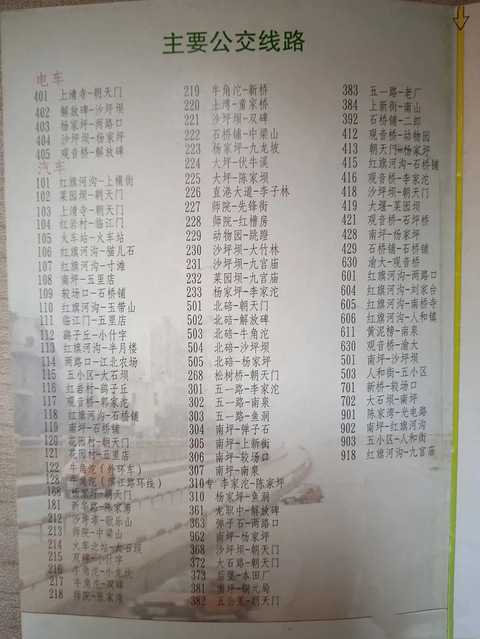 主要公交线路
电车
401 上清寺-朝天门
402 解放碑-沙坪坝
403 杨家坪-两路口
404 沙坪坝-杨家坪
405 观音桥-解放碑
汽车
101 红旗河沟-上横街
102 菜园坝-朝天门
103 上清寺-朝天门
104 红岩村-临江门
105 火车站-火车站
106 红旗河沟-猫儿石
107 红旗河沟-寸滩
108 南坪-五里店
109 较场口-石桥铺
110 红旗河沟-玉带山
111 临江门-五里店
112 鹞子丘-小什字
113 红旗河沟-半月楼
114 两路口-江北农场
115 五小区-大石坝
116 红岩村-鹞子丘
117 观音桥-郭家沱
118 红旗河沟-石桥铺
119 南坪-石桥铺
120 花园村-朝天门
121 花园村-五里店
122 牛角沱(外环车)
128 牛角沱(滨江路环线)
168 杨家坪-朝天门
181 新华路-陈家湾
212 沙坪坝-歌乐山
213 师院-中梁山
214 火车北站-大石坝
215 双碑-小什字
216 牛角沱-小龙坎
217 牛角沱-双碑
218 师院-张家湾
219 牛角沱-新桥
220 上湾-童家桥
221 沙坪坝-双碑
222 石桥铺-中梁山
223 杨家坪-九龙坡
224 大坪-伏牛溪
225 大坪-陈家坝
226 直港大道-李子林
227 师院-先锋街
228 师院-红槽房
229 动物园-跳蹬
230 沙坪坝-大竹林
231 沙坪坝-九宫庙
232 菜园坝-九宫庙
233 杨家坪-李家沱
501 北碚-朝天门
502 北碚-解放碑
503 北碚-牛角沱
504 北碚-沙坪坝
505 北碚-杨家坪
268 松树桥-朝天门
301 五一路-李家沱
302 五一路-南泉
303 五一路-鱼洞
304 南坪-弹子石
305 南坪-上新街
306 南坪-较场口
307 南坪-南泉
310专 李家沱-陈家坪
310 杨家坪-鱼洞
361 龙职中-解放碑
363 弹子石-两路口
962 南坪-杨家坪
368 沙坪坝-朝天门
372 大石路-朝天门
373 后堡-本田厂
381 南坪-铜元局
382 五公里-朝天门
383 五一路-老厂
384 上新街-南山
392 石桥铺-二郎
412 观音桥-动物园
413 朝天门-杨家坪
415 红旗河沟-石桥铺
416 观音桥-李家沱
418 沙坪坝-朝天门
419 大堰-菜园坝
421 观音桥-石坪桥
428 南坪-杨家坪
429 石桥铺-石桥铺
630 渝大-观音桥
601 红旗河沟-两路口
604 红旗河沟-刘家台
605 红旗河沟-南桥寺
606 红旗河沟-人和镇
611 黄泥磅-南泉
630 观音桥-渝大
501 南坪-沙坪坝
503 人和街-五小区
701 新桥-较场口
702 大石坝-南坪
901 陈家湾-光电路
902 南坪-红旗河沟
903 五小区-人和街
918 红旗河沟-九宫庙